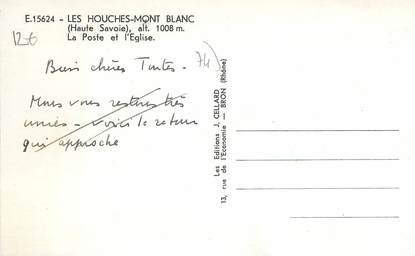 E.15624 - LES HOUCHES-MONT BLANC
(Haute Savoie), alt. 1008 m.
La Poste et l'Eglise.
126
74
Bien chères Tantes -
Nous vous restons très
unies - voici le retour
qui approche
Les Editions J. CELLARD
13, rue de l'Economie - BRON (Rhône)